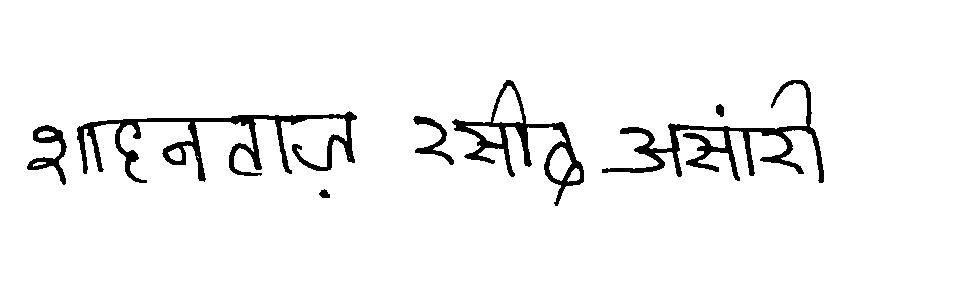 शाहनताज़ रसीद असांरी